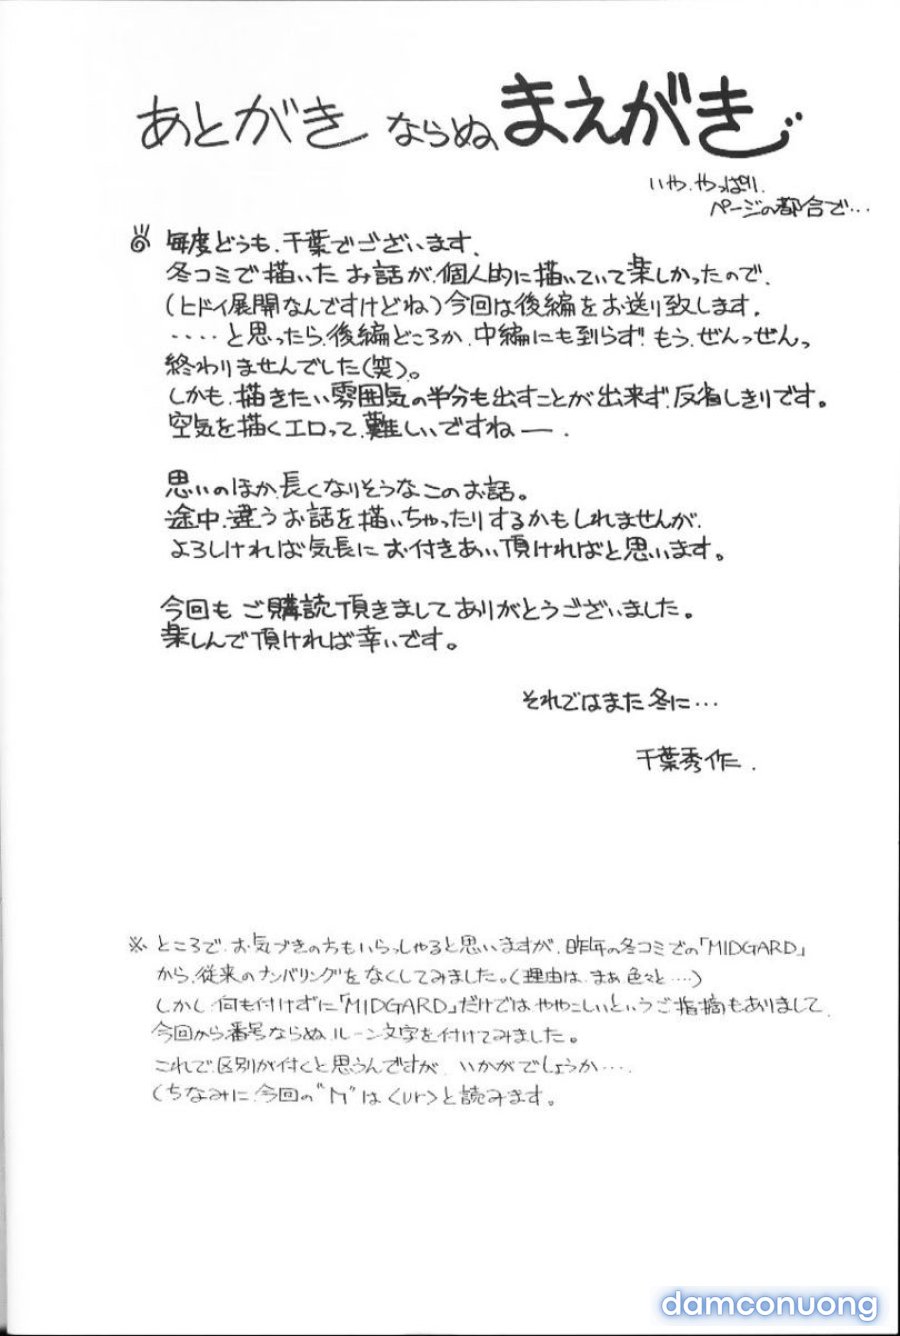 あとがき ならぬ まえがき
いや、やっぱり、
ページの都合で…
毎度どうも、千葉でございます、
冬コミで描いた お話が、個人的に描いていて楽しかったので、
(ヒドイ展開なんですけどね)今回は後編をお送り致します。
‥‥と思ったら、後編どころか、中編にも到らず もう、ぜんっぜんっ
終わりませんでした(笑)。
しかも、描きたい雰囲気の半分も出すことが出来ず、反省しきりです。
空気を描くエロって、難しいですねー、
思いのほか、長くなりそうなこのお話。
途中、違うお話を描いちゃったりするかもしれませんが、
よろしければ気長に お付きあい頂ければと思います。
今回も ご購読頂きましてありがとうございました。
楽しんで頂ければ幸いです。
それではまた冬に…
千葉秀作.
※ところで、お気づきの方もいらっしゃると思いますが、昨年の冬コミでの「MIDGARD」
から、従来のナンバリングをなくしてみました。(理由は、まぁ色々と…)
しかし、何も付けずに「MIDGARD」だけでは ややこしいというご指摘もありまして、
今回から番号ならぬ、ルーン文字を付けてみました。
これで区別が付くと思うんですが、いかがでしょうか…、
(ちなみに、今回の" "は<ur>と読みます。
damconuong